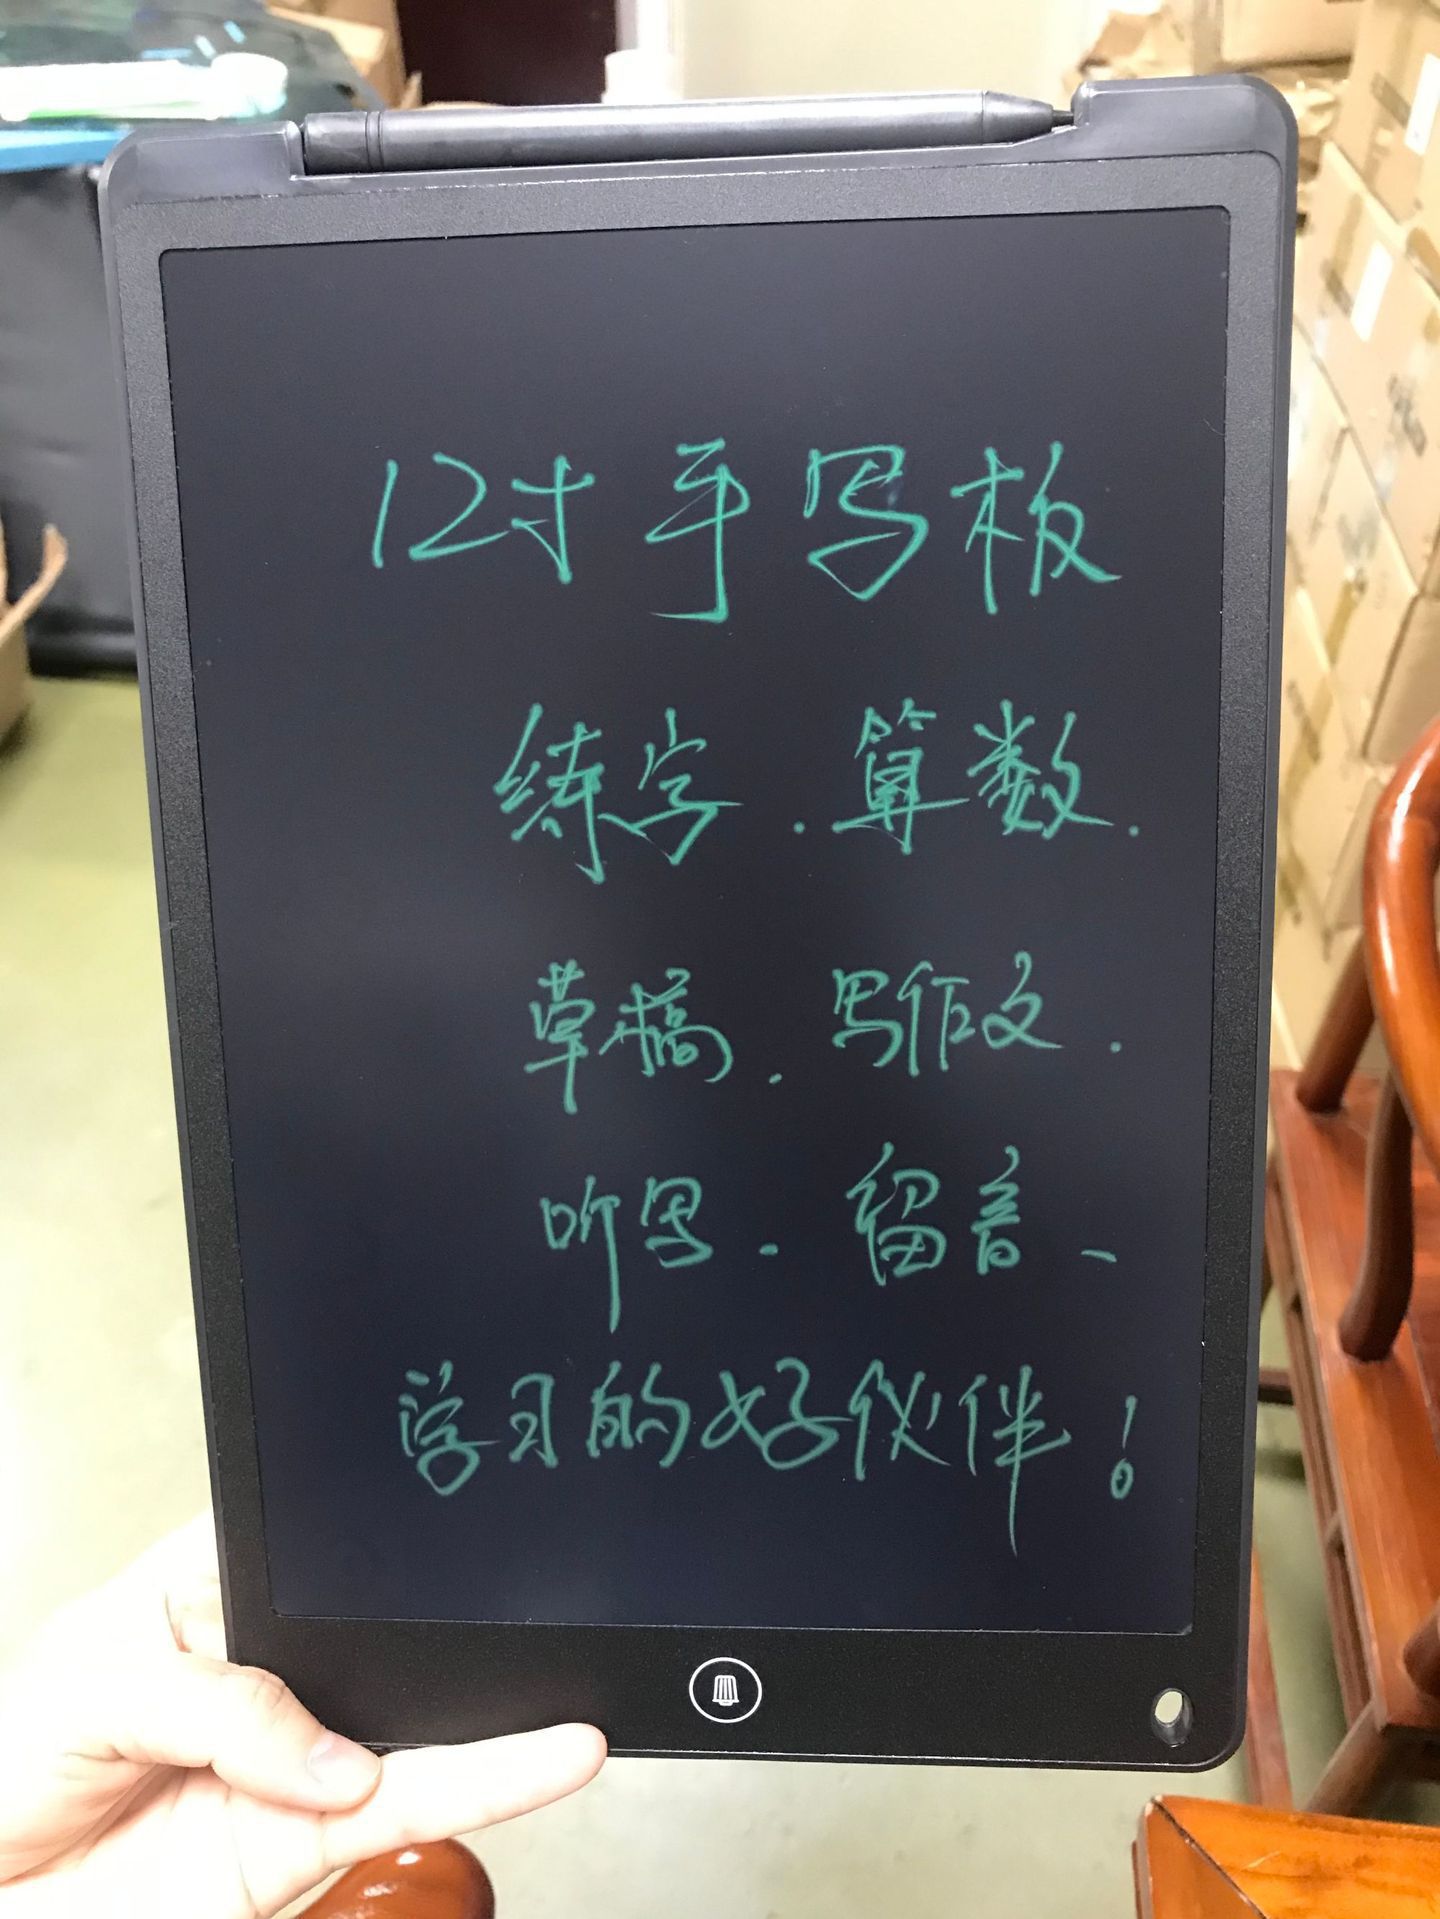 12寸手写板
练字.算数.
草稿.写作文.
听写.留音、
学习的好伙伴!